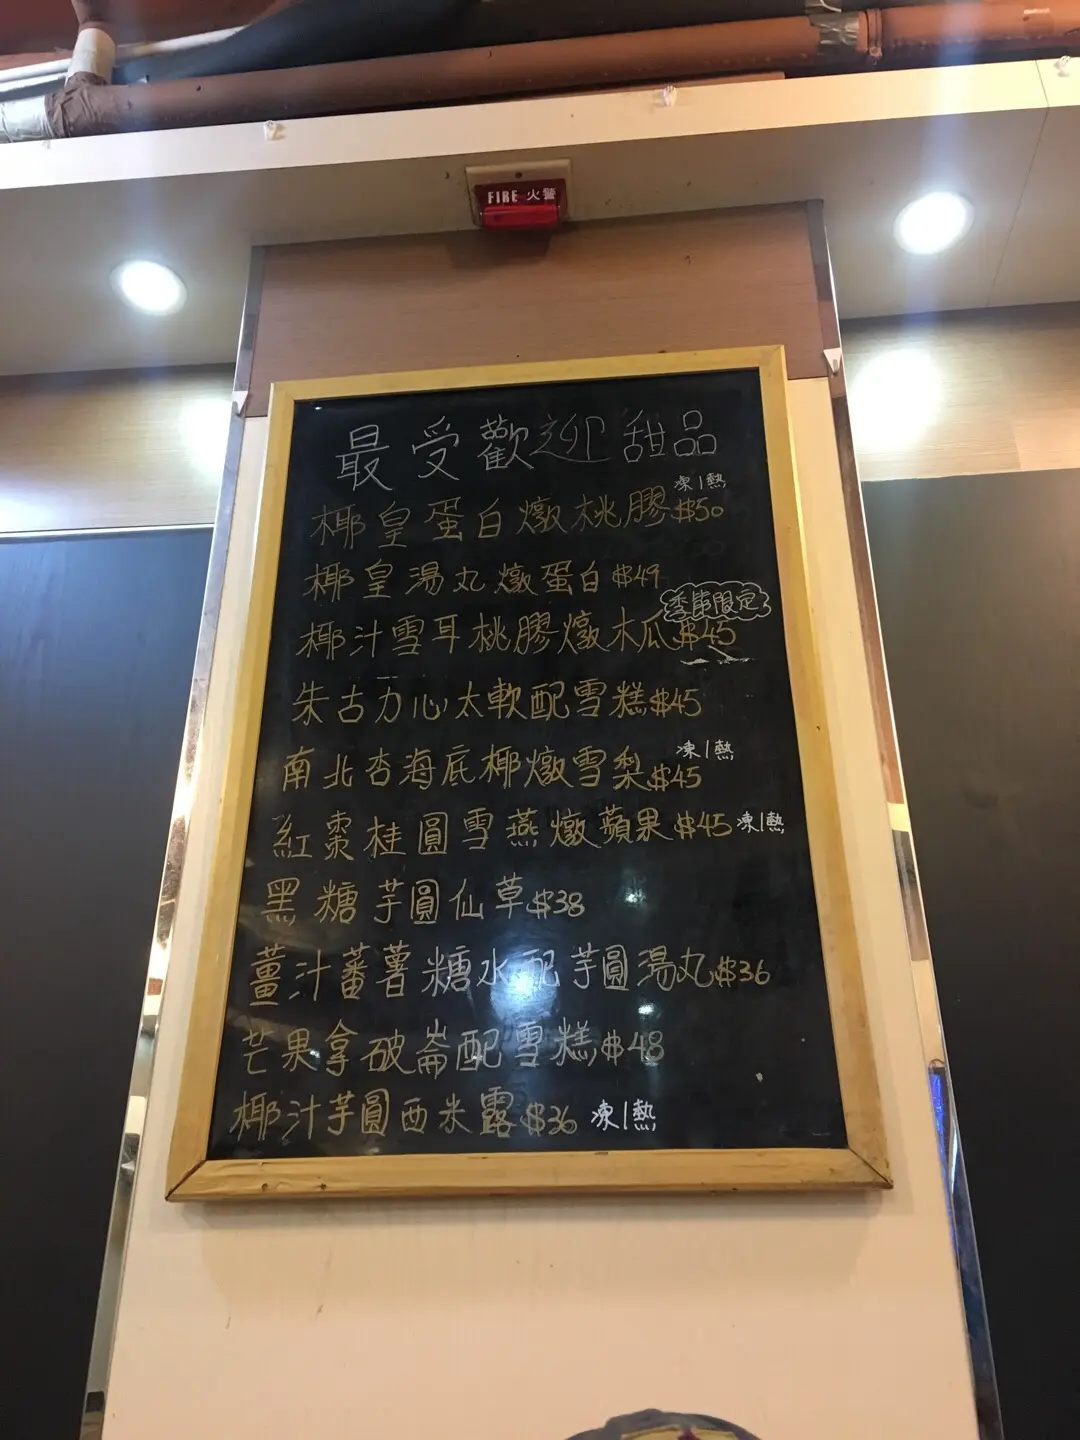 FIRE 火警
最受歡迎甜品
凍/熱
椰皇蛋白燉桃膠$50
椰皇湯丸燉蛋白$49
季節限定
椰汁雪耳桃膠燉木瓜$45
朱古力心太軟配雪糕$45
凍/熱
南北杏海底椰燉雪梨$45
紅棗桂圓雪燕燉蘋果$45 凍/熱
黑糖芋圓仙草$38
薑汁蕃薯糖水配芋圓湯丸$36
芒果拿破崙配雪糕$48
椰汁芋圓西米露$36 凍/熱